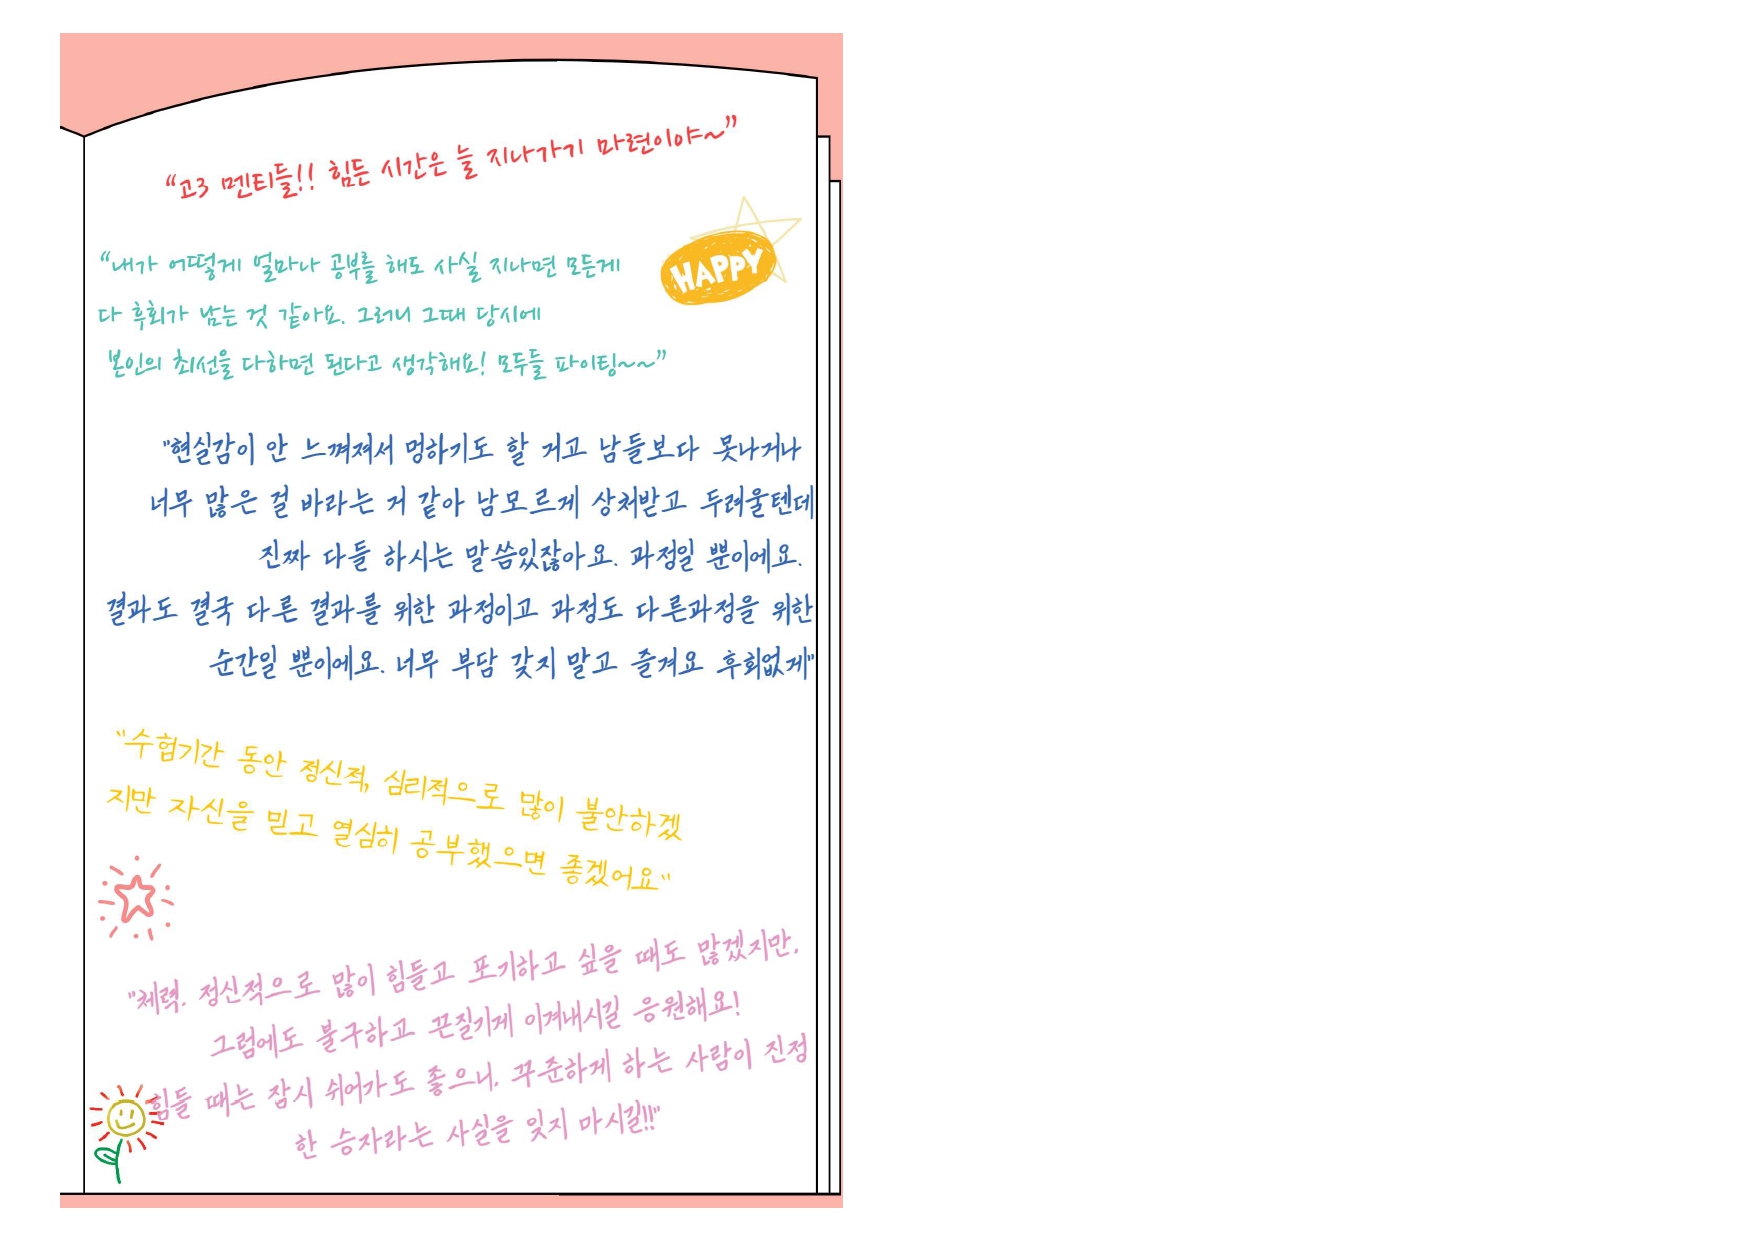 “고3 멘티들!! 힘든 시간은 늘 지나가기 마련이야~”
HAPPY
“내가 어떻게 얼마나 공부를 해도 사실 지나면 모든게
다 후회가 남는 것 같아요. 그러니 그때 당시에
본인의 최선을 다하면 된다고 생각해요! 모두들 파이팅~~”
"현실감이 안 느껴져서 멍하기도 할 거고 남들보다 못나거나
너무 많은 걸 바라는 거 같아 남모르게 상처받고 두려울텐데
진짜 다들 하시는 말씀있잖아요. 과정일 뿐이에요.
결과도 결국 다른 결과를 위한 과정이고 과정도 다른과정을 위한
순간일 뿐이에요. 너무 부담 갖지 말고 즐겨요 후회없게"
"수험기간 동안 정신적, 심리적으로 많이 불안하겠
지만 자신을 믿고 열심히 공부했으면 좋겠어요"
"체력, 정신적으로 많이 힘들고 포기하고 싶을 때도 많겠지만,
그럼에도 불구하고 끈질기게 이겨내시길 응원해요!
힘들 때는 잠시 쉬어가도 좋으니, 꾸준하게 하는 사람이 진정
한 승자라는 사실을 잊지 마시길!!"